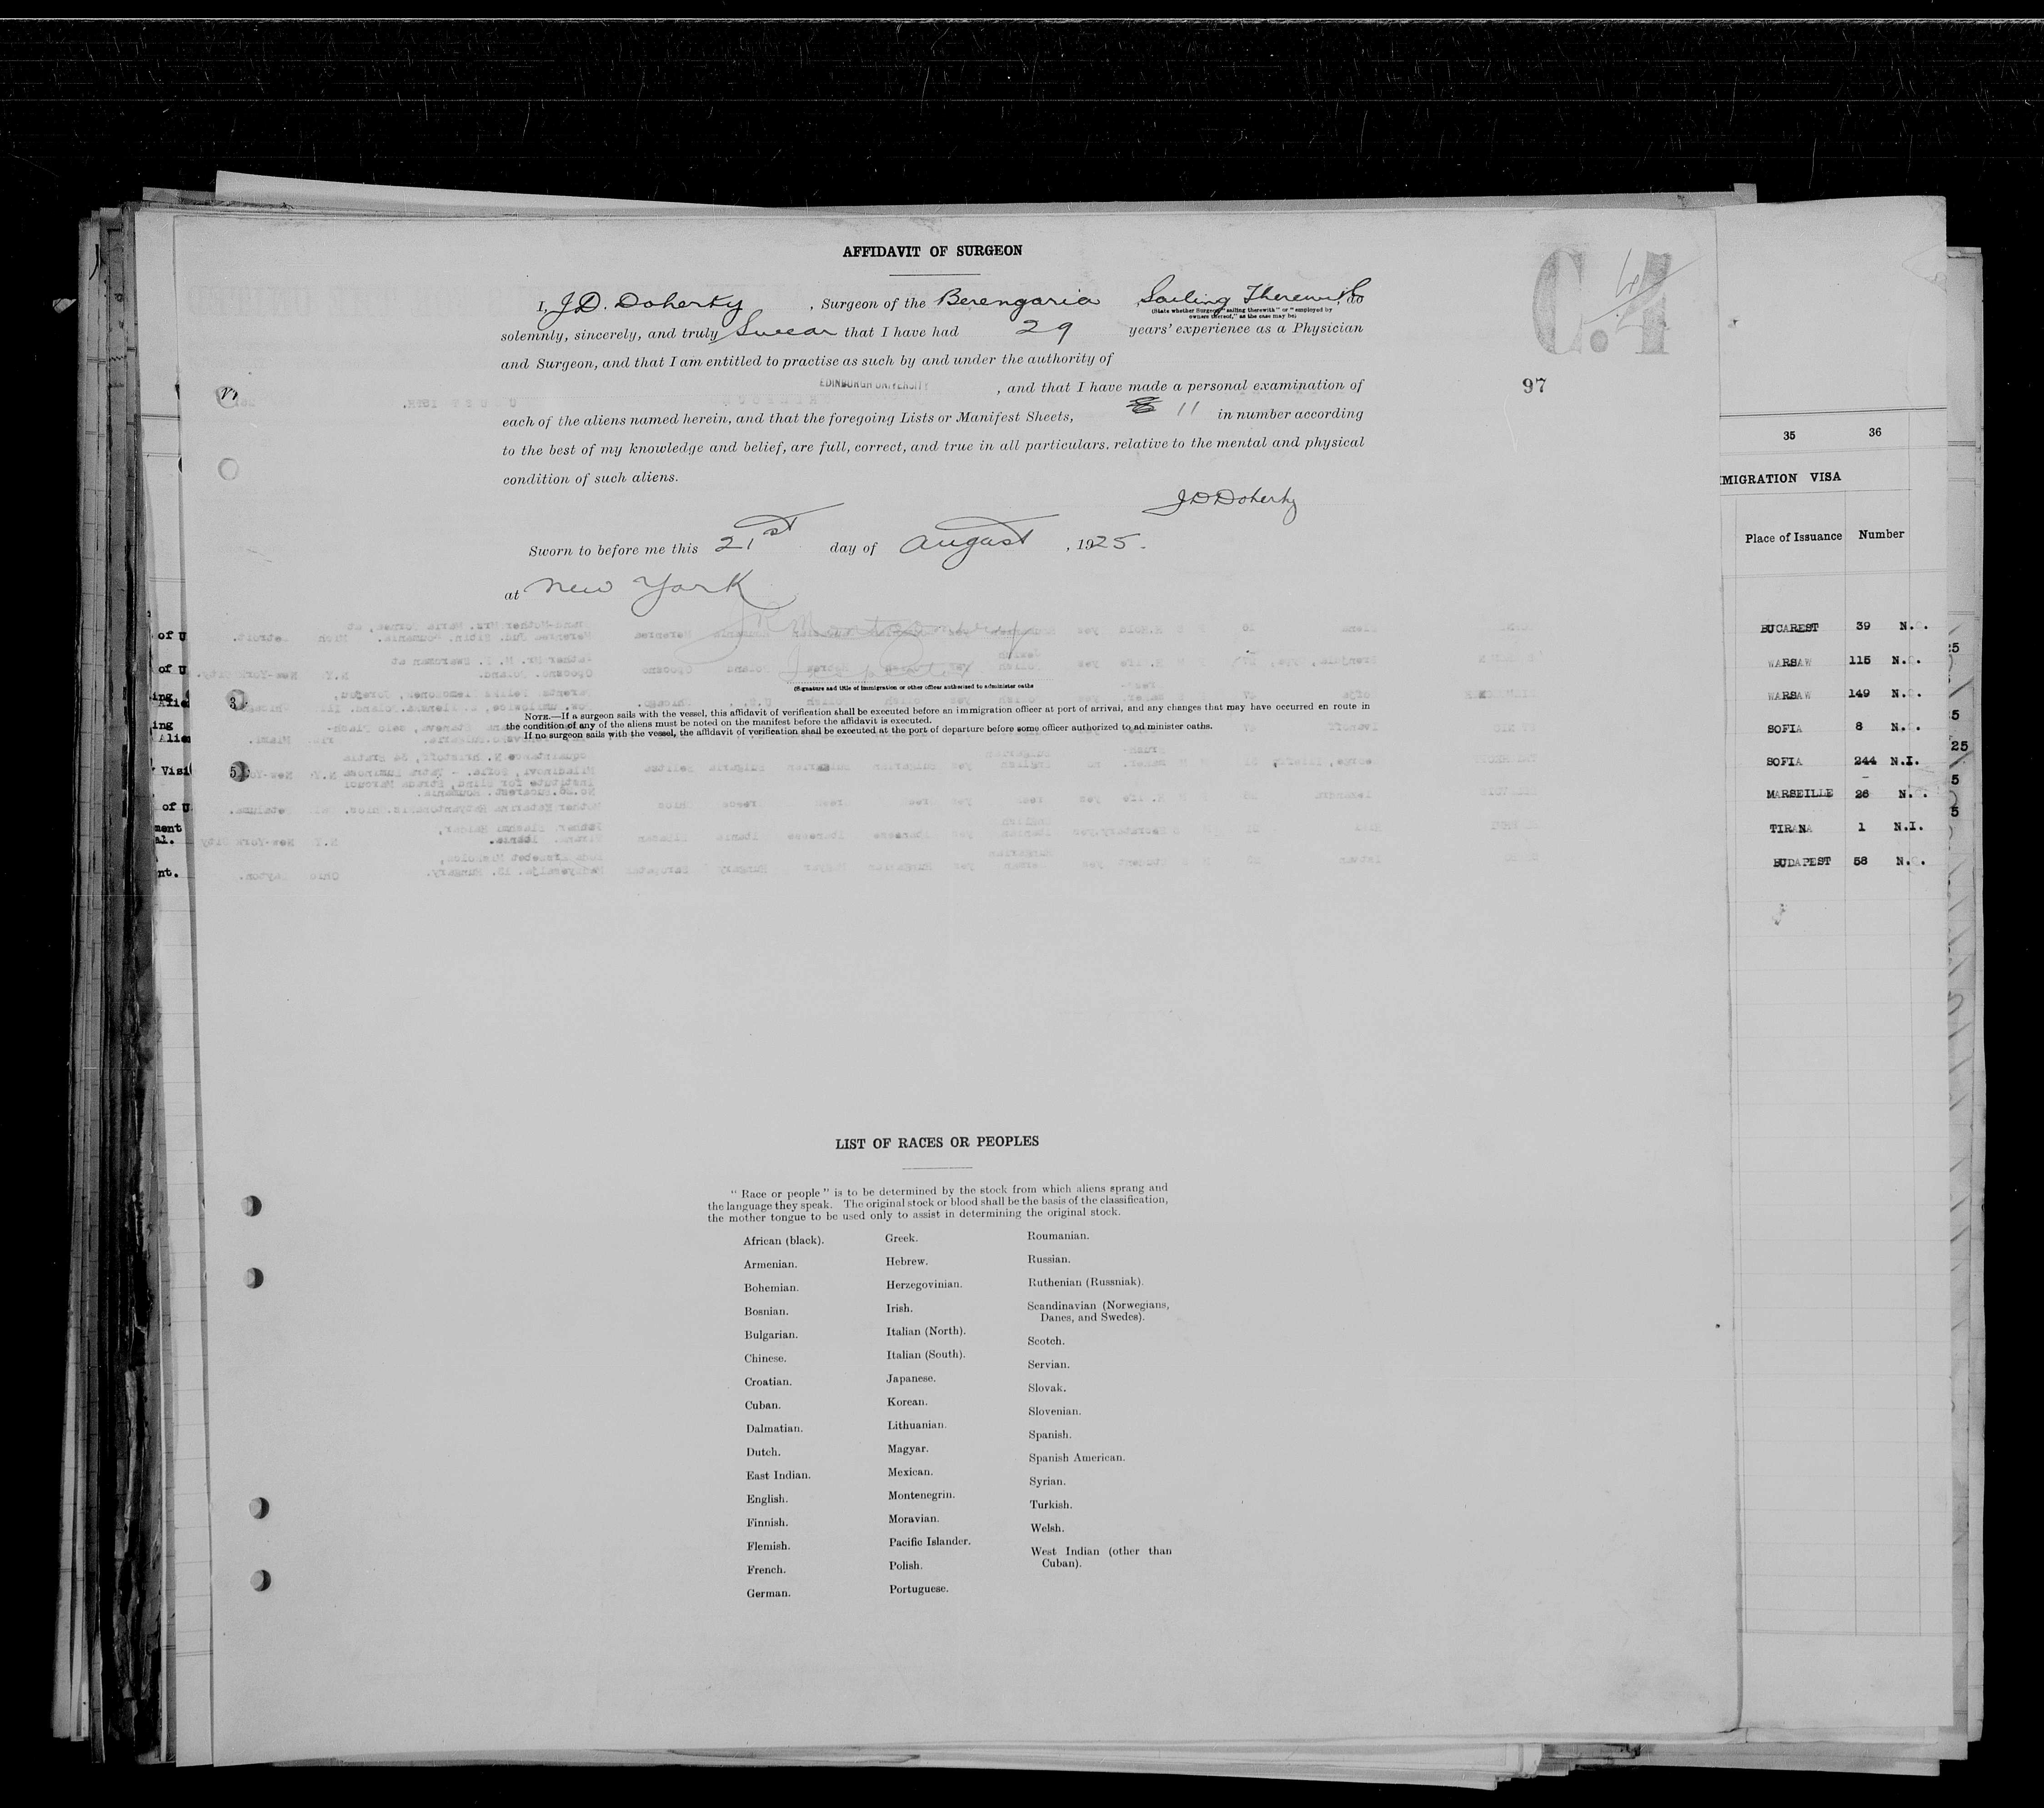 AFFIDAVIT OF SURGEON
C.4
I, J.D. Doherty, Surgeon of the Berengaria Sailing Therewith, do
(State whether Surgeon "sailing therewith" or "employed by
owners thereof," as the case may be)
solemnly, sincerely, and truly Swear that I have had 29 years' experience as a Physician
and Surgeon, and that I am entitled to practise as such by and under the authority of
EDINBURGH UNIVERSITY, and that I have made a personal examination of
97
each of the aliens named herein, and that the foregoing Lists or Manifest Sheets, 11 in number according
to the best of my knowledge and belief, are full, correct, and true in all particulars, relative to the mental and physical
condition of such aliens.
J D Doherty
Sworn to before me this 21st day of August, 1925.
at New York
Inspector
(Signature and title of immigration or other officer authorised to administer oaths
NOTE.—If a surgeon sails with the vessel, this affidavit of verification shall be executed before an immigration officer at port of arrival, and any changes that may have occurred en route in
the condition of any of the aliens must be noted on the manifest before the affidavit is executed.
If no surgeon sails with the vessel, the affidavit of verification shall be executed at the port of departure before some officer authorized to administer oaths.
35 36
MIGRATION VISA
Place of Issuance Number
BUCAREST 39 N.
WARSAW 115 N.
WARSAW 149 N.
SOFIA 8 N.
SOFIA 244 N.I.
MARSEILLE 26 N.
TIRANA 1 N.I.
BUDAPEST 58 N.
of U
of U
ing
Alie
ing
Alien
Visi
of U
ment
al.
nt.
3
5
25
5
5
LIST OF RACES OR PEOPLES
"Race or people" is to be determined by the stock from which aliens sprang and
the language they speak. The original stock or blood shall be the basis of the classification,
the mother tongue to be used only to assist in determining the original stock.
African (black).
Armenian.
Bohemian.
Bosnian.
Bulgarian.
Chinese.
Croatian.
Cuban.
Dalmatian.
Dutch.
East Indian.
English.
Finnish.
Flemish.
French.
German.
Greek.
Hebrew.
Herzegovinian.
Irish.
Italian (North).
Italian (South).
Japanese.
Korean.
Lithuanian.
Magyar.
Mexican.
Montenegrin.
Moravian.
Pacific Islander.
Polish.
Portuguese.
Roumanian.
Russian.
Ruthenian (Russniak).
Scandinavian (Norwegians,
Danes, and Swedes).
Scotch.
Servian.
Slovak.
Slovenian.
Spanish.
Spanish American.
Syrian.
Turkish.
Welsh.
West Indian (other than
Cuban).